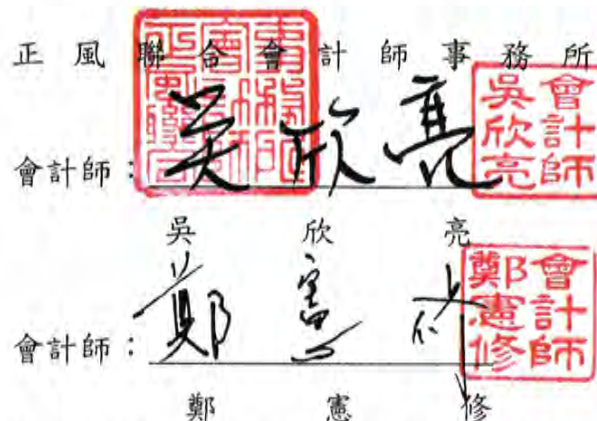 正風聯合會計師事務所
會計師
吳欣亮
會計師：吳欣亮
吳欣亮
會計師
鄭憲修
會計師：鄭憲修
鄭憲修